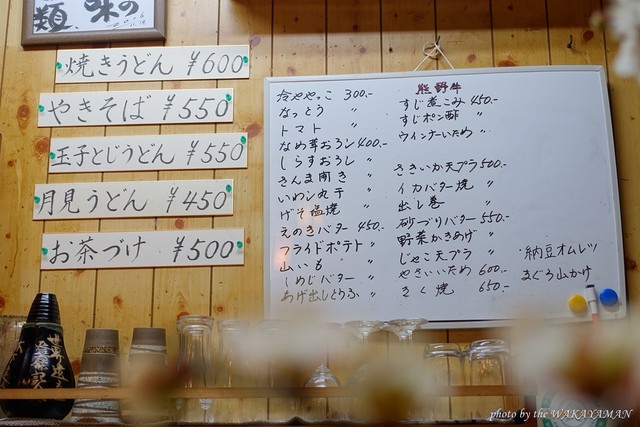 類 味の
焼きうどん ¥600
やきそば ¥550
玉子とじうどん ¥550
月見うどん ¥450
お茶づけ ¥500
冷ややっこ 300.-
なっとう 〃
トマト 〃
なめ茸おろし 400.-
しらすおろし 〃
さんま開き 〃
いわし丸干 〃
げそ塩焼 〃
えのきバター 450.-
フライドポテト 〃
山いも 〃
しめじバター 〃
あげ出しとうふ 〃
熊野牛
すじ煮こみ 450.-
すじポン酢 〃
ウインナーいため 〃
さきいか天プラ 500.-
イカバター焼 〃
出し巻 〃
砂づりバター 550.-
野菜かきあげ 〃
じゃこ天プラ 〃
やさいいため 600.-
焼 650.-
納豆オムレツ
まぐろ山かけ
photo by the WAKAYAMAN